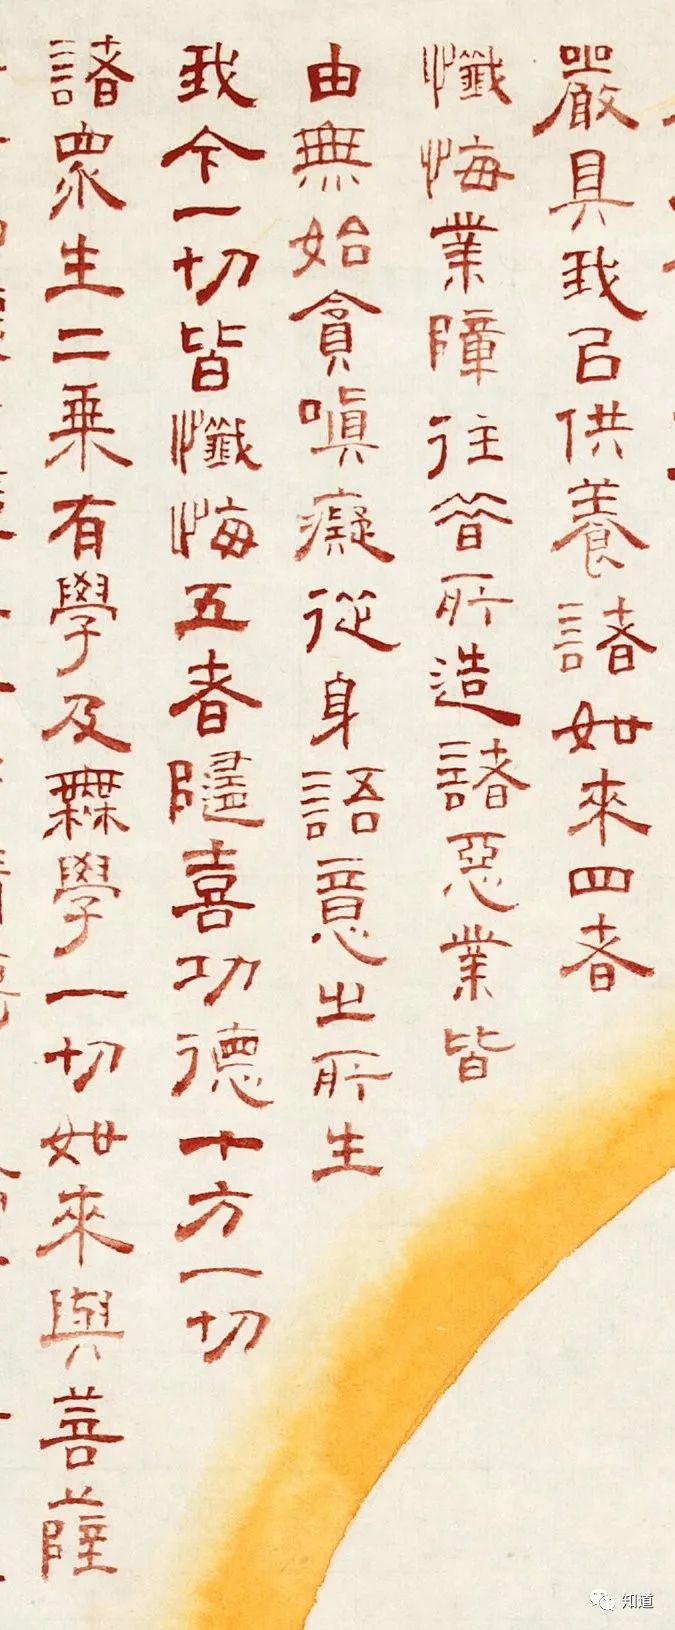 嚴具我㠯供養諸如來四者
懺悔業障往昔所造諸惡業皆
由無始貪嗔癡從身語意之所生
我今一切皆懺悔五者隨喜功德十方一切
諸眾生二乘有學及無學一切如來與菩薩
知道